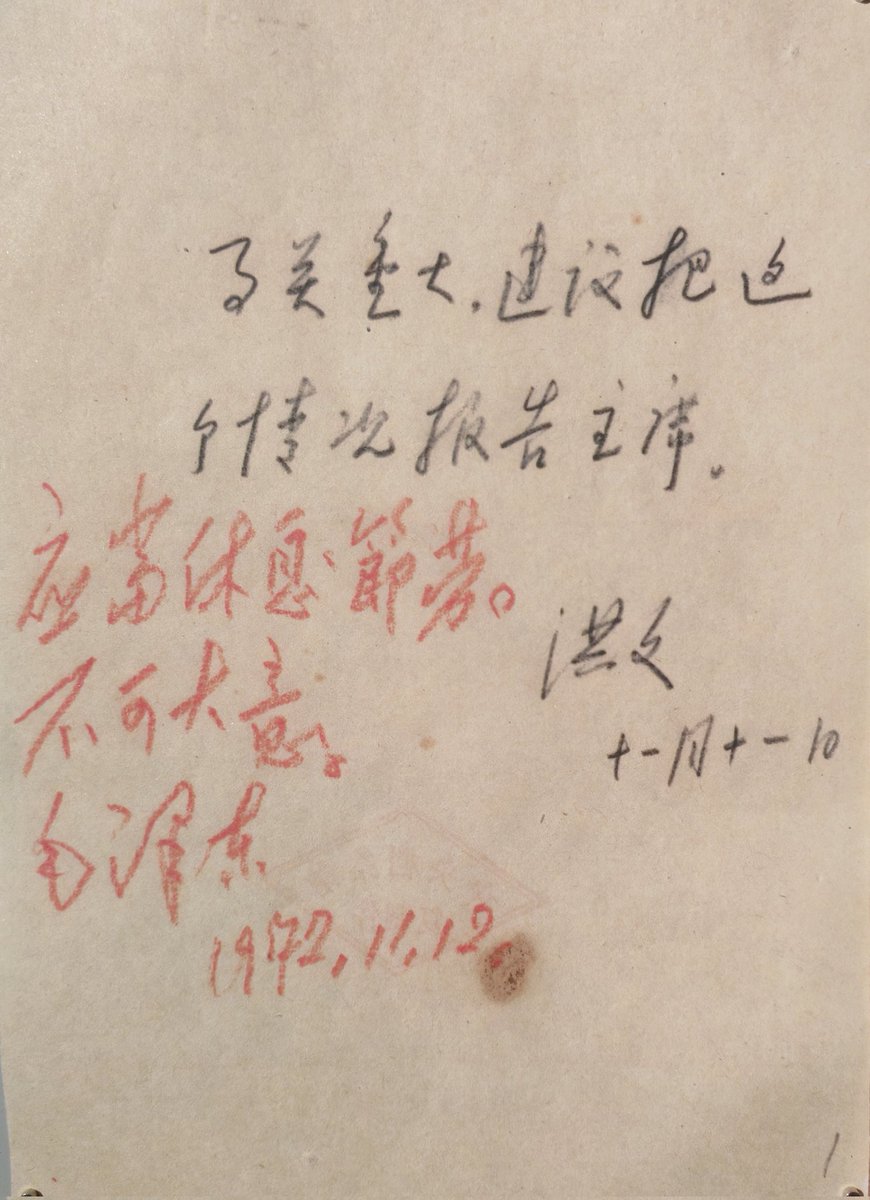 事关重大.建议把这
个情况报告主席。
洪文
十一月十一日
应当休息節劳。
不可大意。
毛泽东
1972.11.12.
1